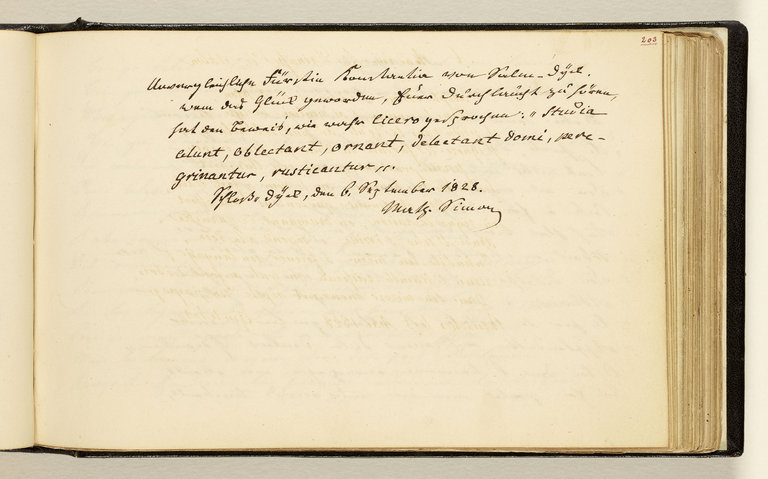 203
Unvergleichliche Fürstin Konstantia von Salm-Dyck.
wem das Glück geworden, Euer Durchlaucht zu hören,
hat den Beweis, wie wahr Cicero gesprochen: „Studia
alunt, oblectant, ornant, delectant domi, pere-
grinantur, rusticantur„.
Schloss Dyck, den 6. September 1828.
Simon